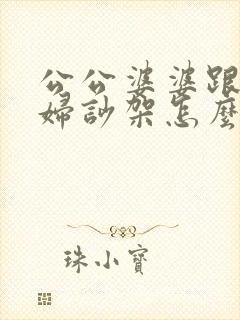 公公婆婆跟
婦訬架怎麼
珠小寶